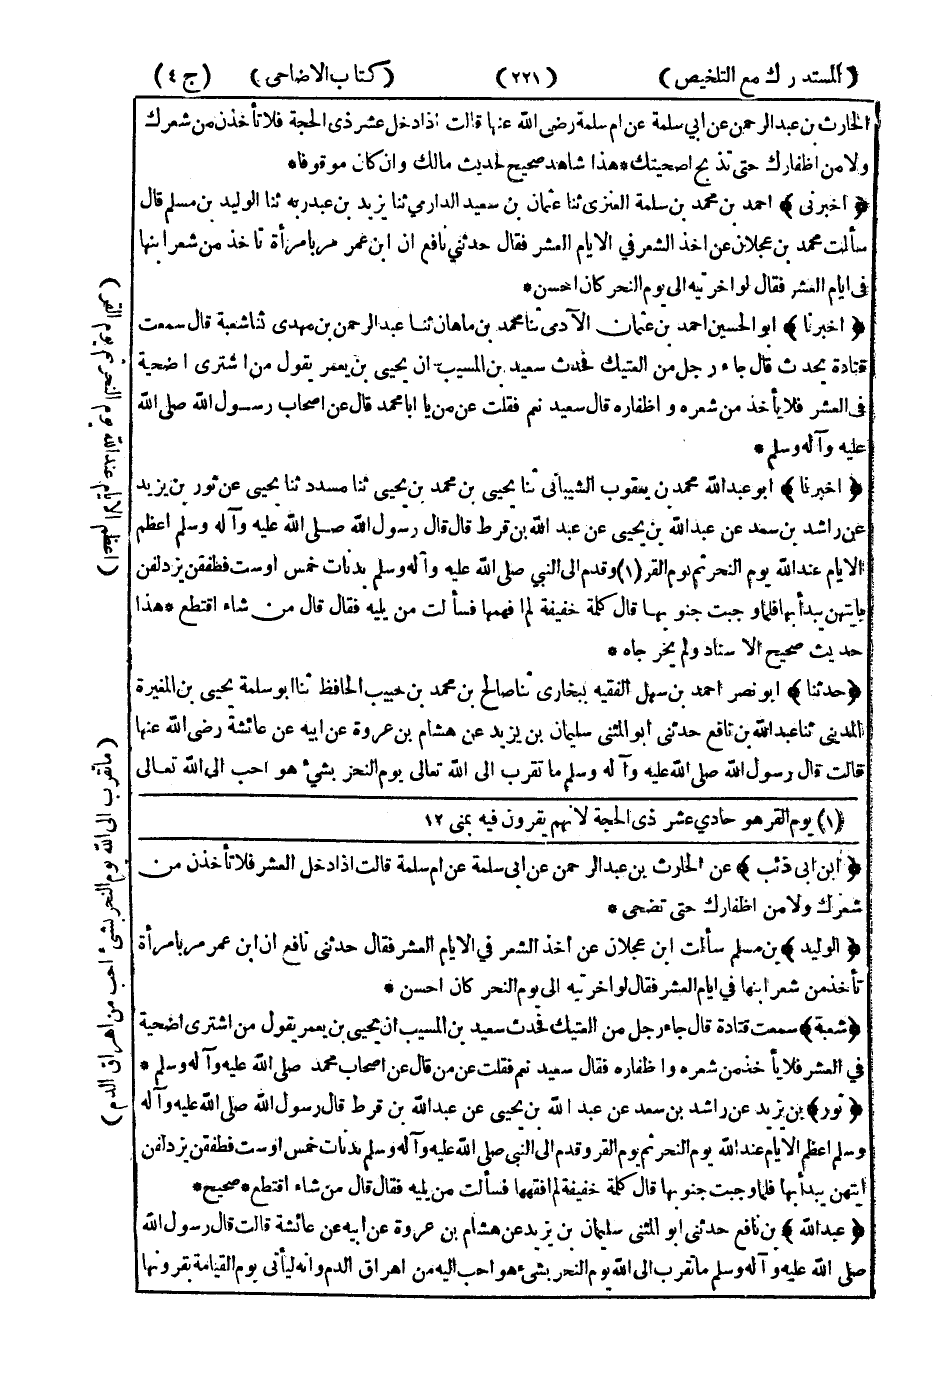 (المستدرك مع التلخيص) (٢٢١) (كتاب الاضاحى) (ج ٤)
الحارث بن عبدالرحمن عن أبي سلمة عن ام سلمة رضى الله عنها قالت اذا دخل عشر ذى الحجة فلا تأخذن من شعرك
ولا من اظفارك حتى تذبح اضحيتك * هذا شاهد صحيح لحديث مالك وان كان موقوفا *
﴿ اخبرنى ﴾ احمد بن محمد بن سلمة العنزى ثنا عثمان بن سعيد الدارمي ثنا يزيد بن عبدربه ثنا الوليد بن مسلم قال
سألت محمد بن عجلان عن اخذ الشعر في الايام العشر فقال حدثني نافع ان ابن عمر مر بامرأة تاخذ من شعر ابنها
فى ايام العشر فقال لو اخرتيه الى يوم النحر كان احسن *
﴿ اخبرنا ﴾ ابو الحسين احمد بن عثمان الآدمى ثنا محمد بن ماهان ثنا عبدالرحمن بن مهدى ثنا شعبة قال سمعت
قتادة يحدث قال جاء رجل من العتيك فحدث سعيد بن المسيب ان يحيى بن يعمر يقول من اشترى اضحية
فى العشر فلا يأخذ من شعره و اظفاره قال سعيد نعم فقلت عن من يا ابا محمد قال عن اصحاب رسول الله صلى الله
عليه وآله وسلم *
﴿ اخبرنا ﴾ ابو عبدالله محمد بن يعقوب الشيبانى ثنا يحيى بن محمد بن يحيى ثنا مسدد ثنا يحيى عن ثور بن يزيد
عن راشد بن سعد عن عبدالله بن يحيى عن عبد الله بن قرط قال قال رسول الله صلى الله عليه وآله وسلم اعظم
الايام عند الله يوم النحر ثم يوم القر (١) وقدم الى النبي صلى الله عليه وآله وسلم بدنات خمس اوست فطفقن يزدلفن
بايتهن يبدأ بها فلما وجبت جنوبها قال كلمة خفيفة لم افهمها فسألت من يليه فقال قال من شاء اقتطع * هذا
حديث صحيح الاسناد ولم يخرجاه *
﴿ حدثنا ﴾ ابو نصر احمد بن سهل الفقيه ببخارى ثنا صالح بن محمد بن حبيب الحافظ ثنا ابو سلمة يحيى بن المغيرة
المدينى ثنا عبدالله بن نافع حدثنى ابو المثنى سليمان بن يزيد عن هشام بن عروة عن ابيه عن عائشة رضى الله عنها
قالت قال رسول الله صلى الله عليه وآله وسلم ما تقرب الى الله تعالى يوم النحر بشئ هو احب الى الله تعالى
(١) يوم القر هو حادي عشر ذى الحجة لانهم يقرون فيه بمنى ١٢
﴿ ابن ابى ذئب ﴾ عن الحارث بن عبدالرحمن عن ابى سلمة عن ام سلمة قالت اذا دخل العشر فلا تأخذن من
شعرك ولا من اظفارك حتى تضحى *
﴿ الوليد ﴾ بن مسلم سألت ابن عجلان عن أخذ الشعر في الايام العشر فقال حدثنى نافع ان ابن عمر مر بامرأة
تأخذ من شعر ابنها في ايام العشر فقال لو اخرتيه الى يوم النحر كان احسن *
﴿ شعبة ﴾ سمعت قتادة قال جاء رجل من العتيك فحدث سعيد بن المسيب ان يحيى بن يعمر يقول من اشترى اضحية
في العشر فلا يأخذ من شعره واظفاره فقال سعيد نعم فقلت عن من قال عن اصحاب محمد صلى الله عليه وآله وسلم *
﴿ ثور ﴾ بن يزيد عن راشد بن سعد عن عبد الله بن يحيى عن عبدالله بن قرط قال رسول الله صلى الله عليه وآله
وسلم اعظم الايام عند الله يوم النحر ثم يوم القر وقدم الى النبى صلى الله عليه وآله وسلم بدنات خمس اوست فطفقن يزدلفن
ايتهن يبدأ بها فلما وجبت جنوبها قال كلمة خفيفة لم افقهها فسألت من يليه فقال قال من شاء اقتطع * صحيح *
﴿ عبدالله ﴾ بن نافع حدثنى ابو المثنى سليمان بن يزيد عن هشام بن عروة عن ابيه عن عائشة قالت قال رسول الله
صلى الله عليه وآله وسلم ما تقرب الى الله يوم النحر بشئ هو احب اليه من اهراق الدم وانه ليأتى يوم القيامة بقرونها
(اعظم الايام عندالله يوم النحر ثم يوم القر)
(ما تقرب الى الله يوم النحر بشئ احب من اهراق الدم)